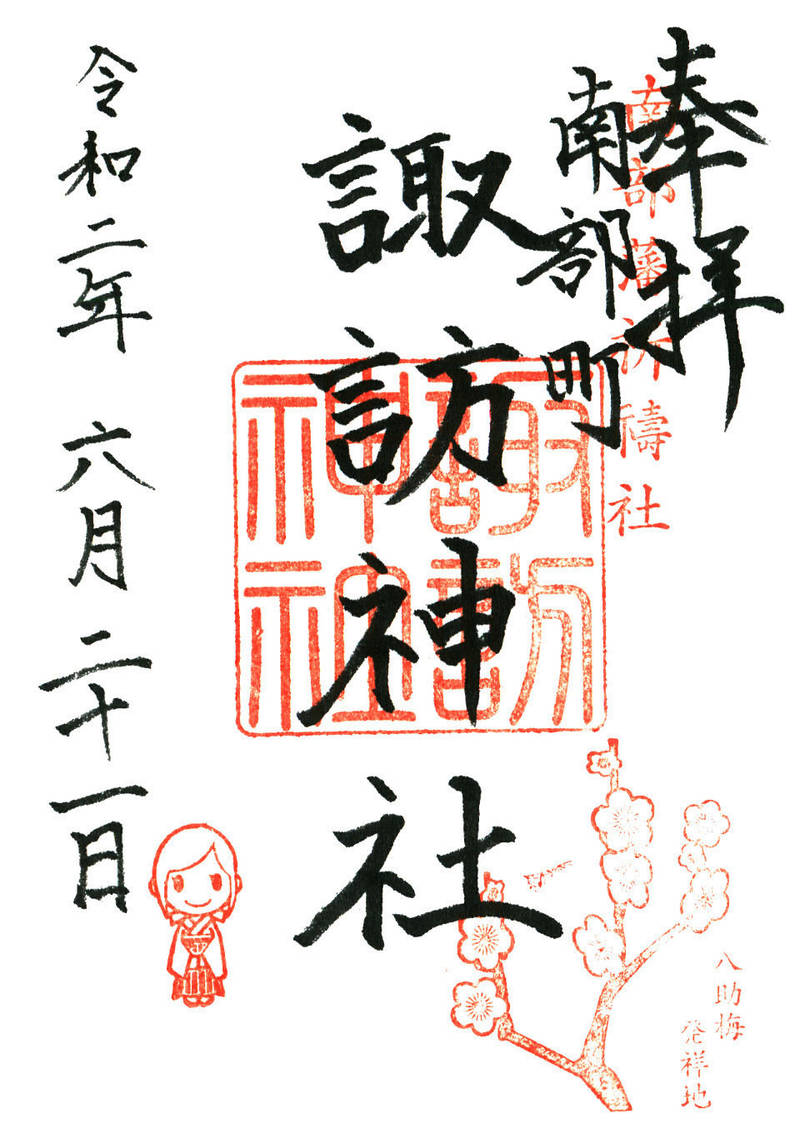 奉拝
南部藩祈祷社
南部町
諏訪神社
諏訪
神社
令和二年 六月 二十一日
八助梅
発祥地